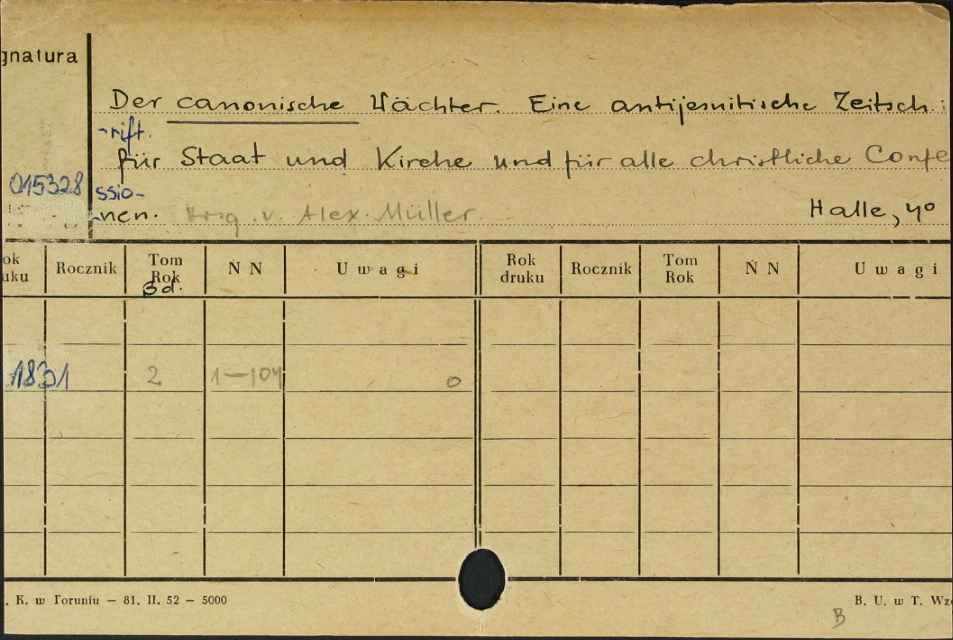 gnatura
Der canonische Wächter. Eine antijesuitische Zeitsch:
-rift.
für Staat und Kirche und für alle christliche Confe
015328 ssio-
-nen. Hrsg. v. Alex. Müller. Halle, 4º
ok uku Rocznik Tom Rok N N Uwagi Rok druku Rocznik Tom Rok N N Uwagi
Bd.
1831 2 1-104 0
. K. w Toruniu — 81. II. 52 — 5000 B. U. w T. Wzo
B